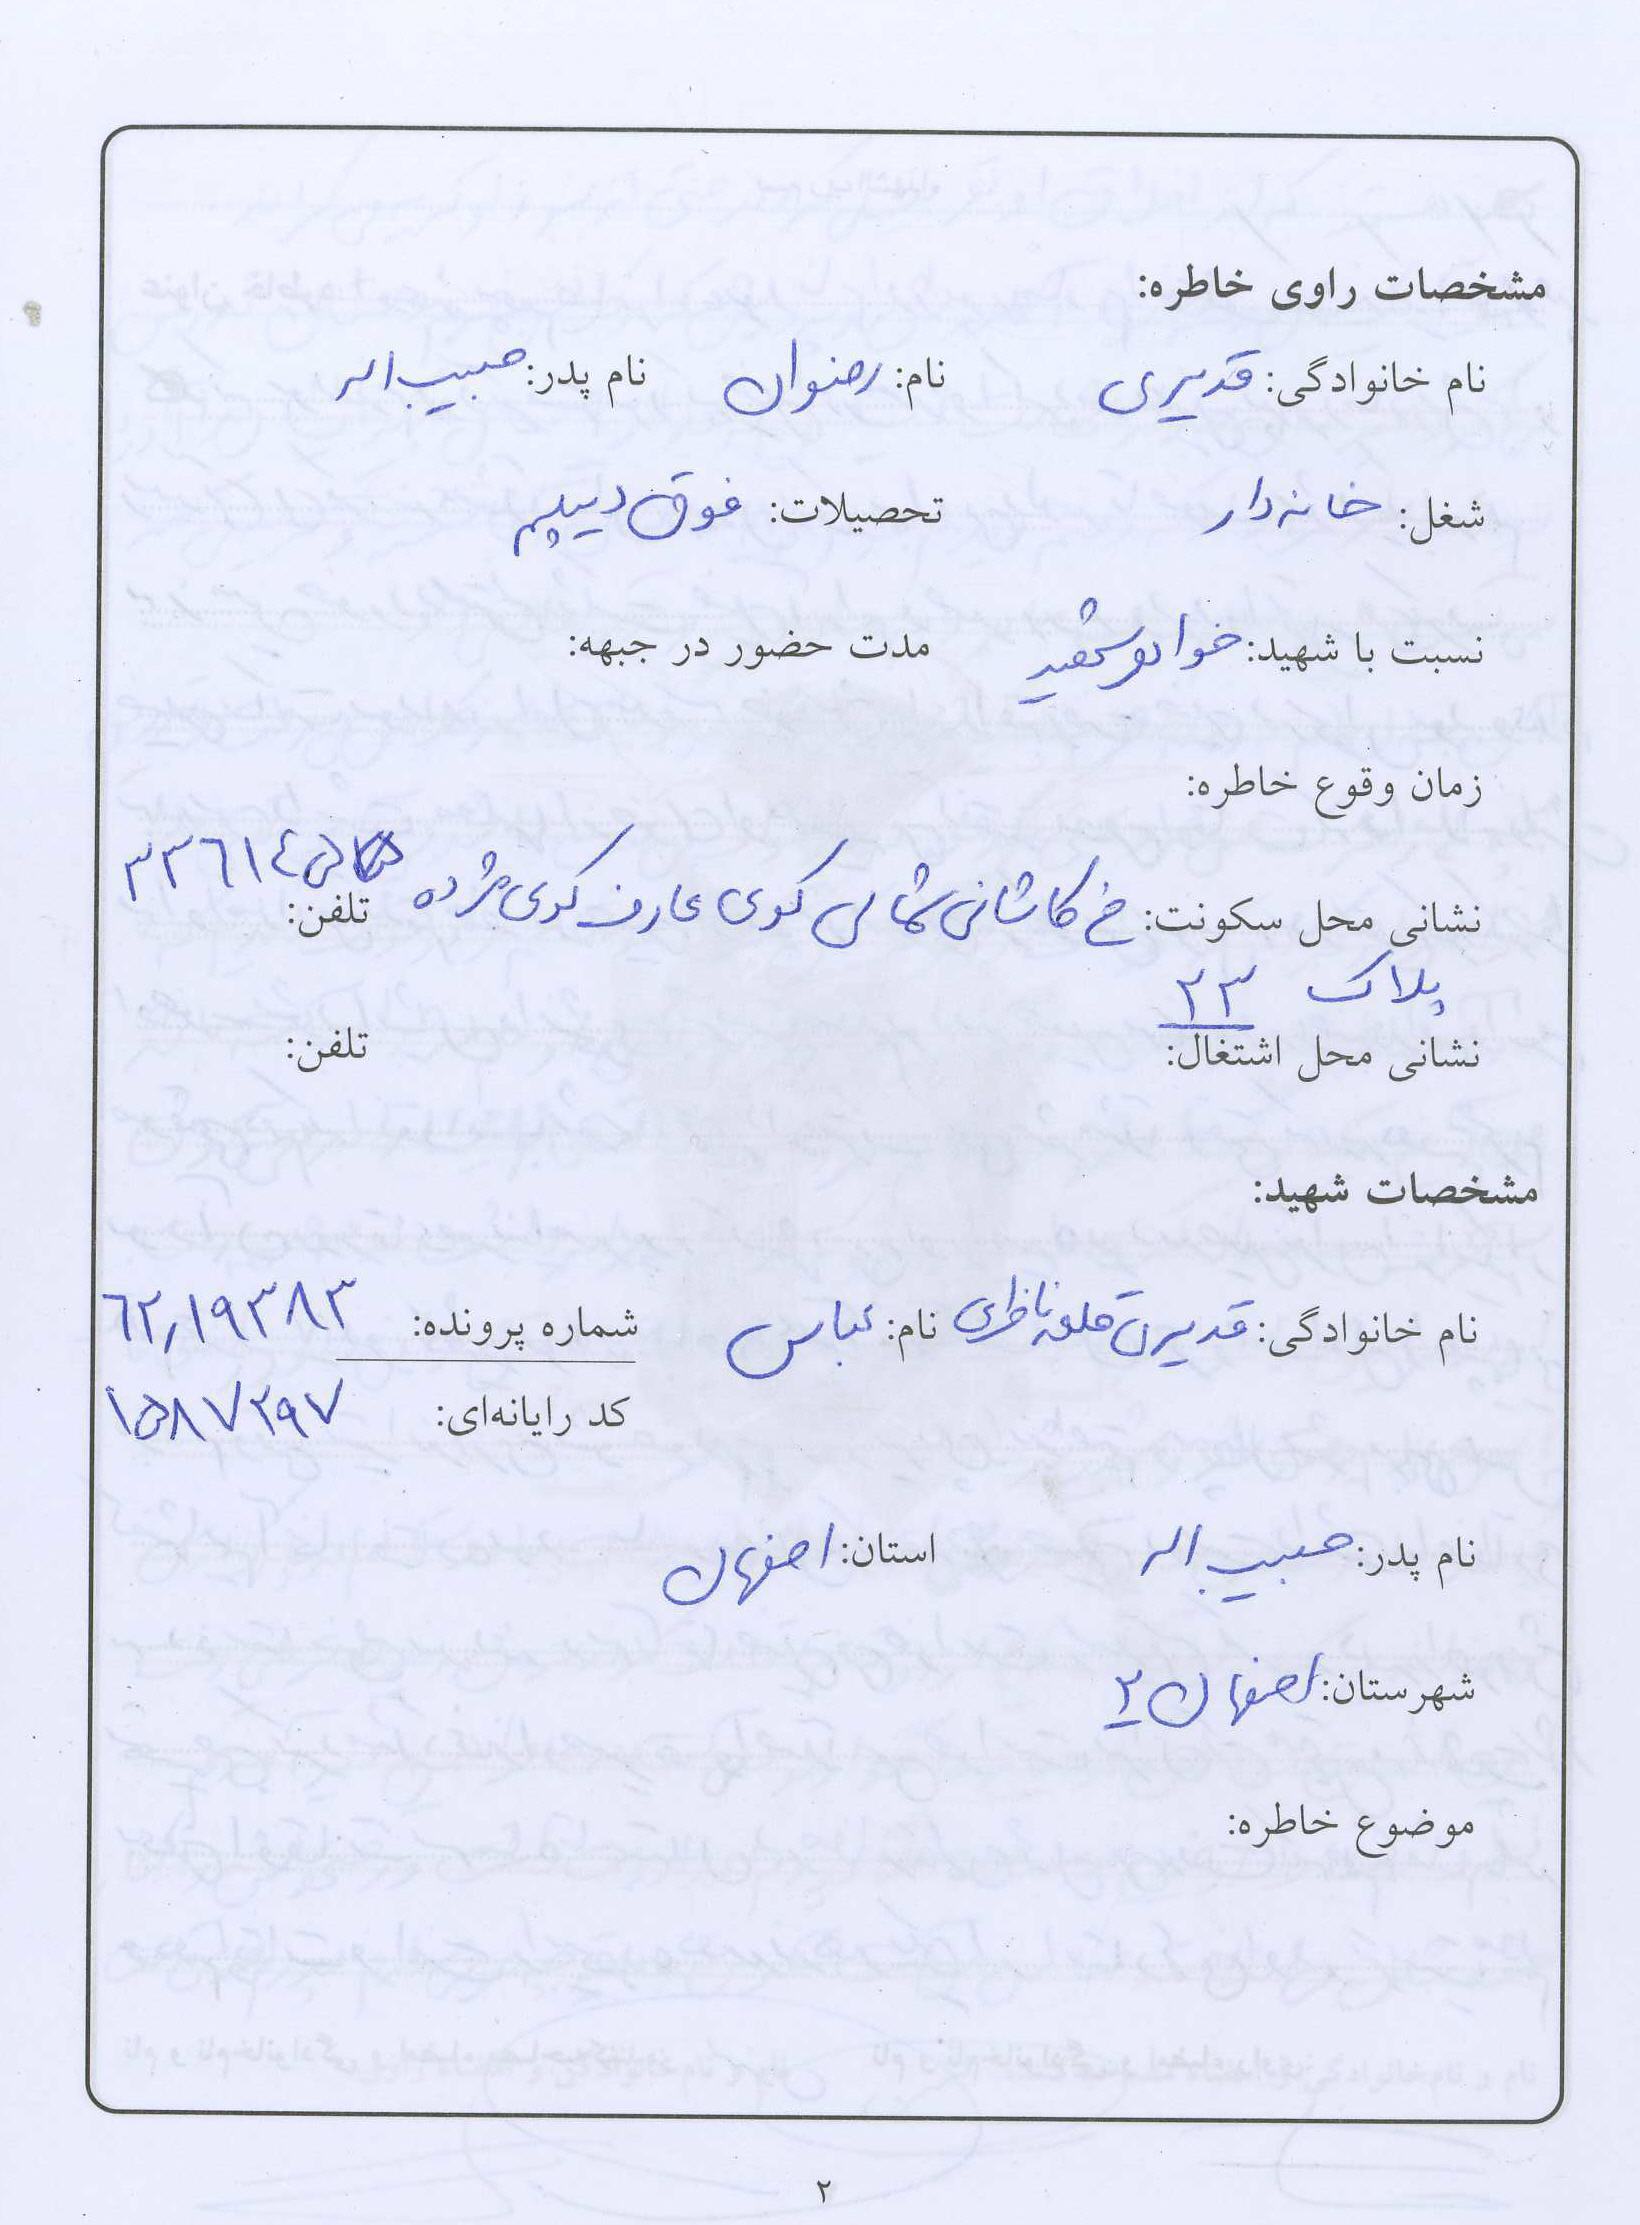 مشخصات راوی خاطره:
نام خانوادگی: قدیری نام: رضوان نام پدر: حبیب اله
شغل: خانه دار تحصیلات: فوق دیپلم
نسبت با شهید: خواهر شهید مدت حضور در جبهه:
زمان وقوع خاطره:
نشانی محل سکونت: خ کاشانی شمالی کوی عارف کوی مژده تلفن:
پلاک ۲۳
نشانی محل اشتغال: تلفن:
مشخصات شهید:
نام خانوادگی: قدیری قلعه ناظری نام: عباس شماره پرونده: ۶۲٫۱۹۳۸۳
کد رایانه‌ای: ۱۵۸۷۲۹۷
نام پدر: حبیب اله استان: اصفهان
شهرستان: اصفهان ۲
موضوع خاطره:
۲